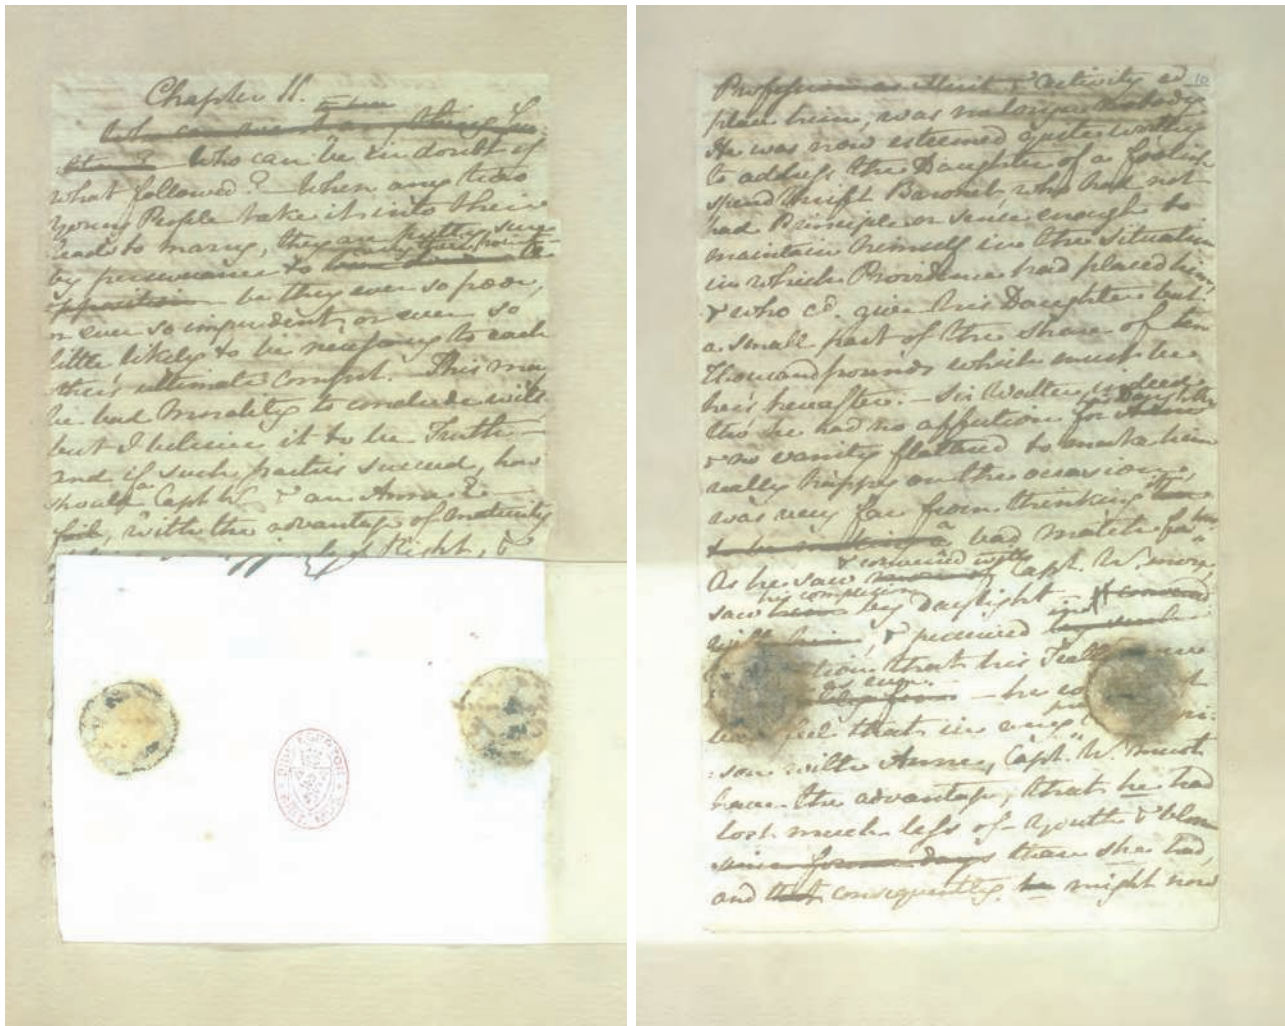 Chapter 11.
Who can be in doubt of
what followed? When any two
Young People take it into their
heads to marry, they are pretty sure
by perseverance to carry their point
be they ever so poor,
or ever so imprudent, or ever so
little likely to be necessary to each
other's ultimate comfort. This may
be bad Morality to conclude with,
but I believe it to be Truth—
and if such parties succeed, how
should a Capt W. & an Anne E
fail, with the advantage of Maturity
of Right, &
10
Profession as Merit & Activity cd
place him, was no longer nobody.
He was now esteemed quite worthy
to address the Daughter of a foolish
spendthrift Baronet, who had not
had Principle or sense enough to
maintain himself in the Situation
in which Providence had placed him,
& who cd. give his Daughter but
a small part of the share of ten
Thousand pounds which must be
her's hereafter.— Sir Walter indeed
tho' he had no affection for Anne
& no vanity flattered to make him
really happy on the occasion,
was very far from thinking
a bad match for
& conversed with
As he saw Capt. W. more,
his complexion
saw by Daylight
& perceived
that his
as ever
— he
feel that in any
son with Anne, Capt. W. must
have the advantage, that he had
lost much less of youth & bloom
since former days than she had,
and that consequently he might now